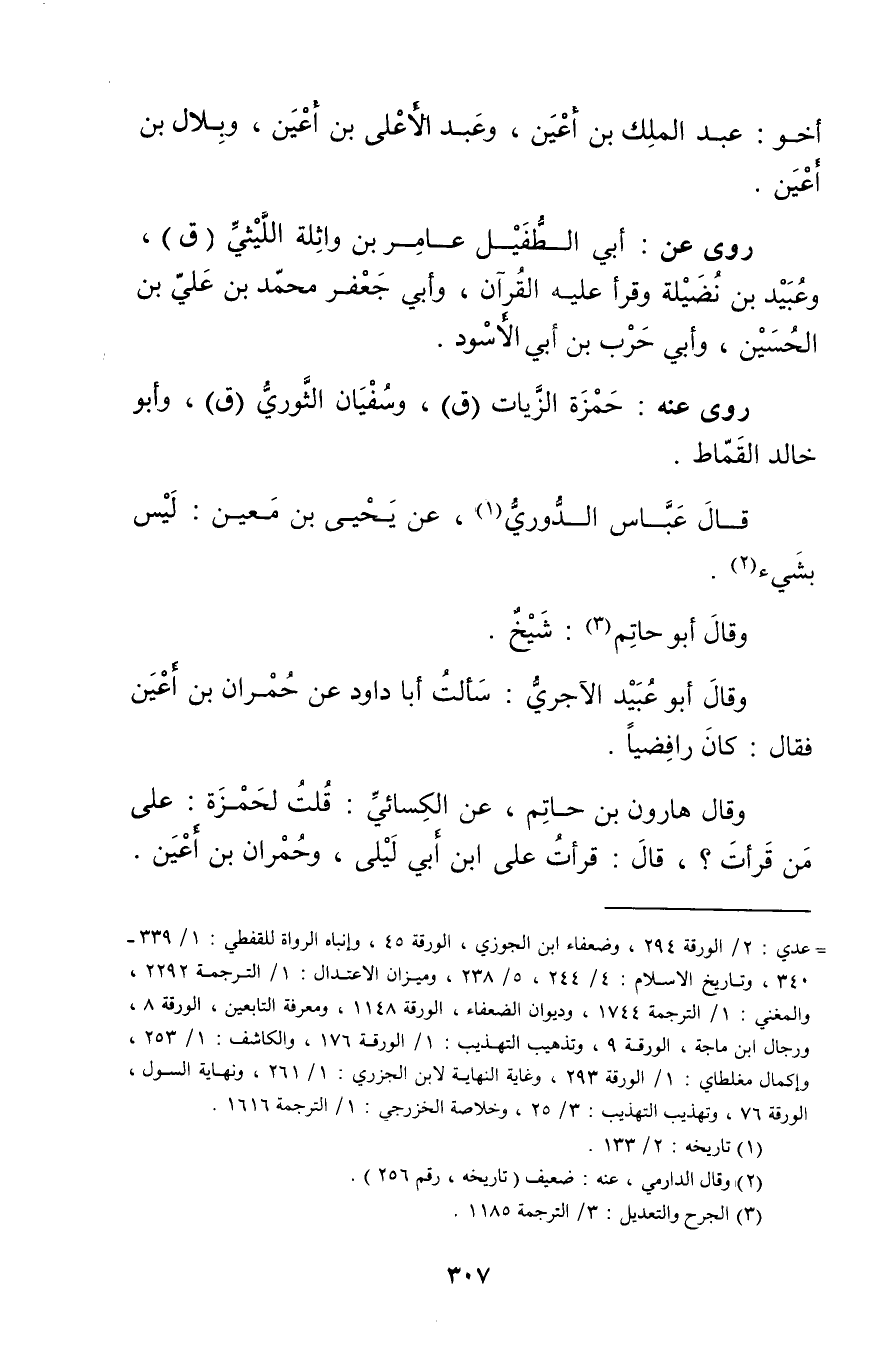 أخو : عبد الملِك بن أَعْيَن ، وعَبد الأَعْلى بن أَعْيَن ، وبِلال بن
أَعْيَن .
روى عن : أبي الطُّفَيْل عامِر بن واثِلة اللَّيْثيِّ ( ق ) ،
وعُبَيْد بن نُضَيْلة وقرأ عليه القُرآن ، وأبي جَعْفر محمّد بن عَليّ بن
الحُسَيْن ، وأبي حَرْب بن أبي الأَسْود .
روى عنه : حَمْزَة الزَّيات (ق) ، وسُفْيَان الثَّوريُّ (ق) ، وأبو
خالد القَمّاط .
قالَ عَبَّاس الدُّوريُّ(١) ، عن يَحْيى بن مَعين : لَيْس
بشَيء(٢) .
وقالَ أبو حاتِم(٣) : شَيْخٌ .
وقالَ أبو عُبَيْد الآجريُّ : سَألتُ أبا داود عن حُمْران بن أَعْيَن
فقال : كانَ رافِضياً .
وقال هارون بن حاتِم ، عن الكِسائيِّ : قُلتُ لحَمْزَة : على
مَن قَرأتَ ؟ ، قالَ : قرأتُ على ابن أَبي لَيْلى ، وحُمْران بن أَعْيَن .
= عدي : ٢/ الورقة ٢٩٤ ، وضعفاء ابن الجوزي ، الورقة ٤٥ ، وإنباه الرواة للقفطي : ١/ ٣٣٩ ـ
٣٤٠ ، وتاريخ الاسلام : ٤/ ٢٤٤ ، ٥/ ٢٣٨ ، وميزان الاعتدال : ١/ الترجمة ٢٢٩٢ ،
والمغني : ١/ الترجمة ١٧٤٤ ، وديوان الضعفاء ، الورقة ١١٤٨ ، ومعرفة التابعين ، الورقة ٨ ،
ورجال ابن ماجة ، الورقة ٩ ، وتذهيب التهذيب : ١/ الورقة ١٧٦ ، والكاشف : ١/ ٢٥٣ ،
وإكمال مغلطاي : ١/ الورقة ٢٩٣ ، وغاية النهاية لابن الجزري : ١/ ٢٦١ ، ونهاية السول ،
الورقة ٧٦ ، وتهذيب التهذيب : ٣/ ٢٥ ، وخلاصة الخزرجي : ١/ الترجمة ١٦١٦ .
(١) تاريخه : ٢/ ١٣٣ .
(٢) وقال الدارمي ، عنه : ضعيف ( تاريخه ، رقم ٢٥٦ ) .
(٣) الجرح والتعديل : ٣/ الترجمة ١١٨٥ .
٣٠٧